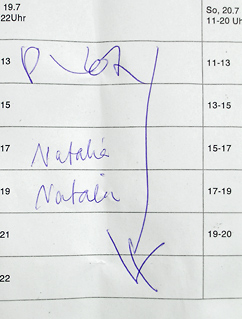 19.7
22Uhr
So, 20.7
11-20 Uh
13
11-13
15
13-15
17 Natalia 15-17
19 Natalia 17-19
21
19-20
22